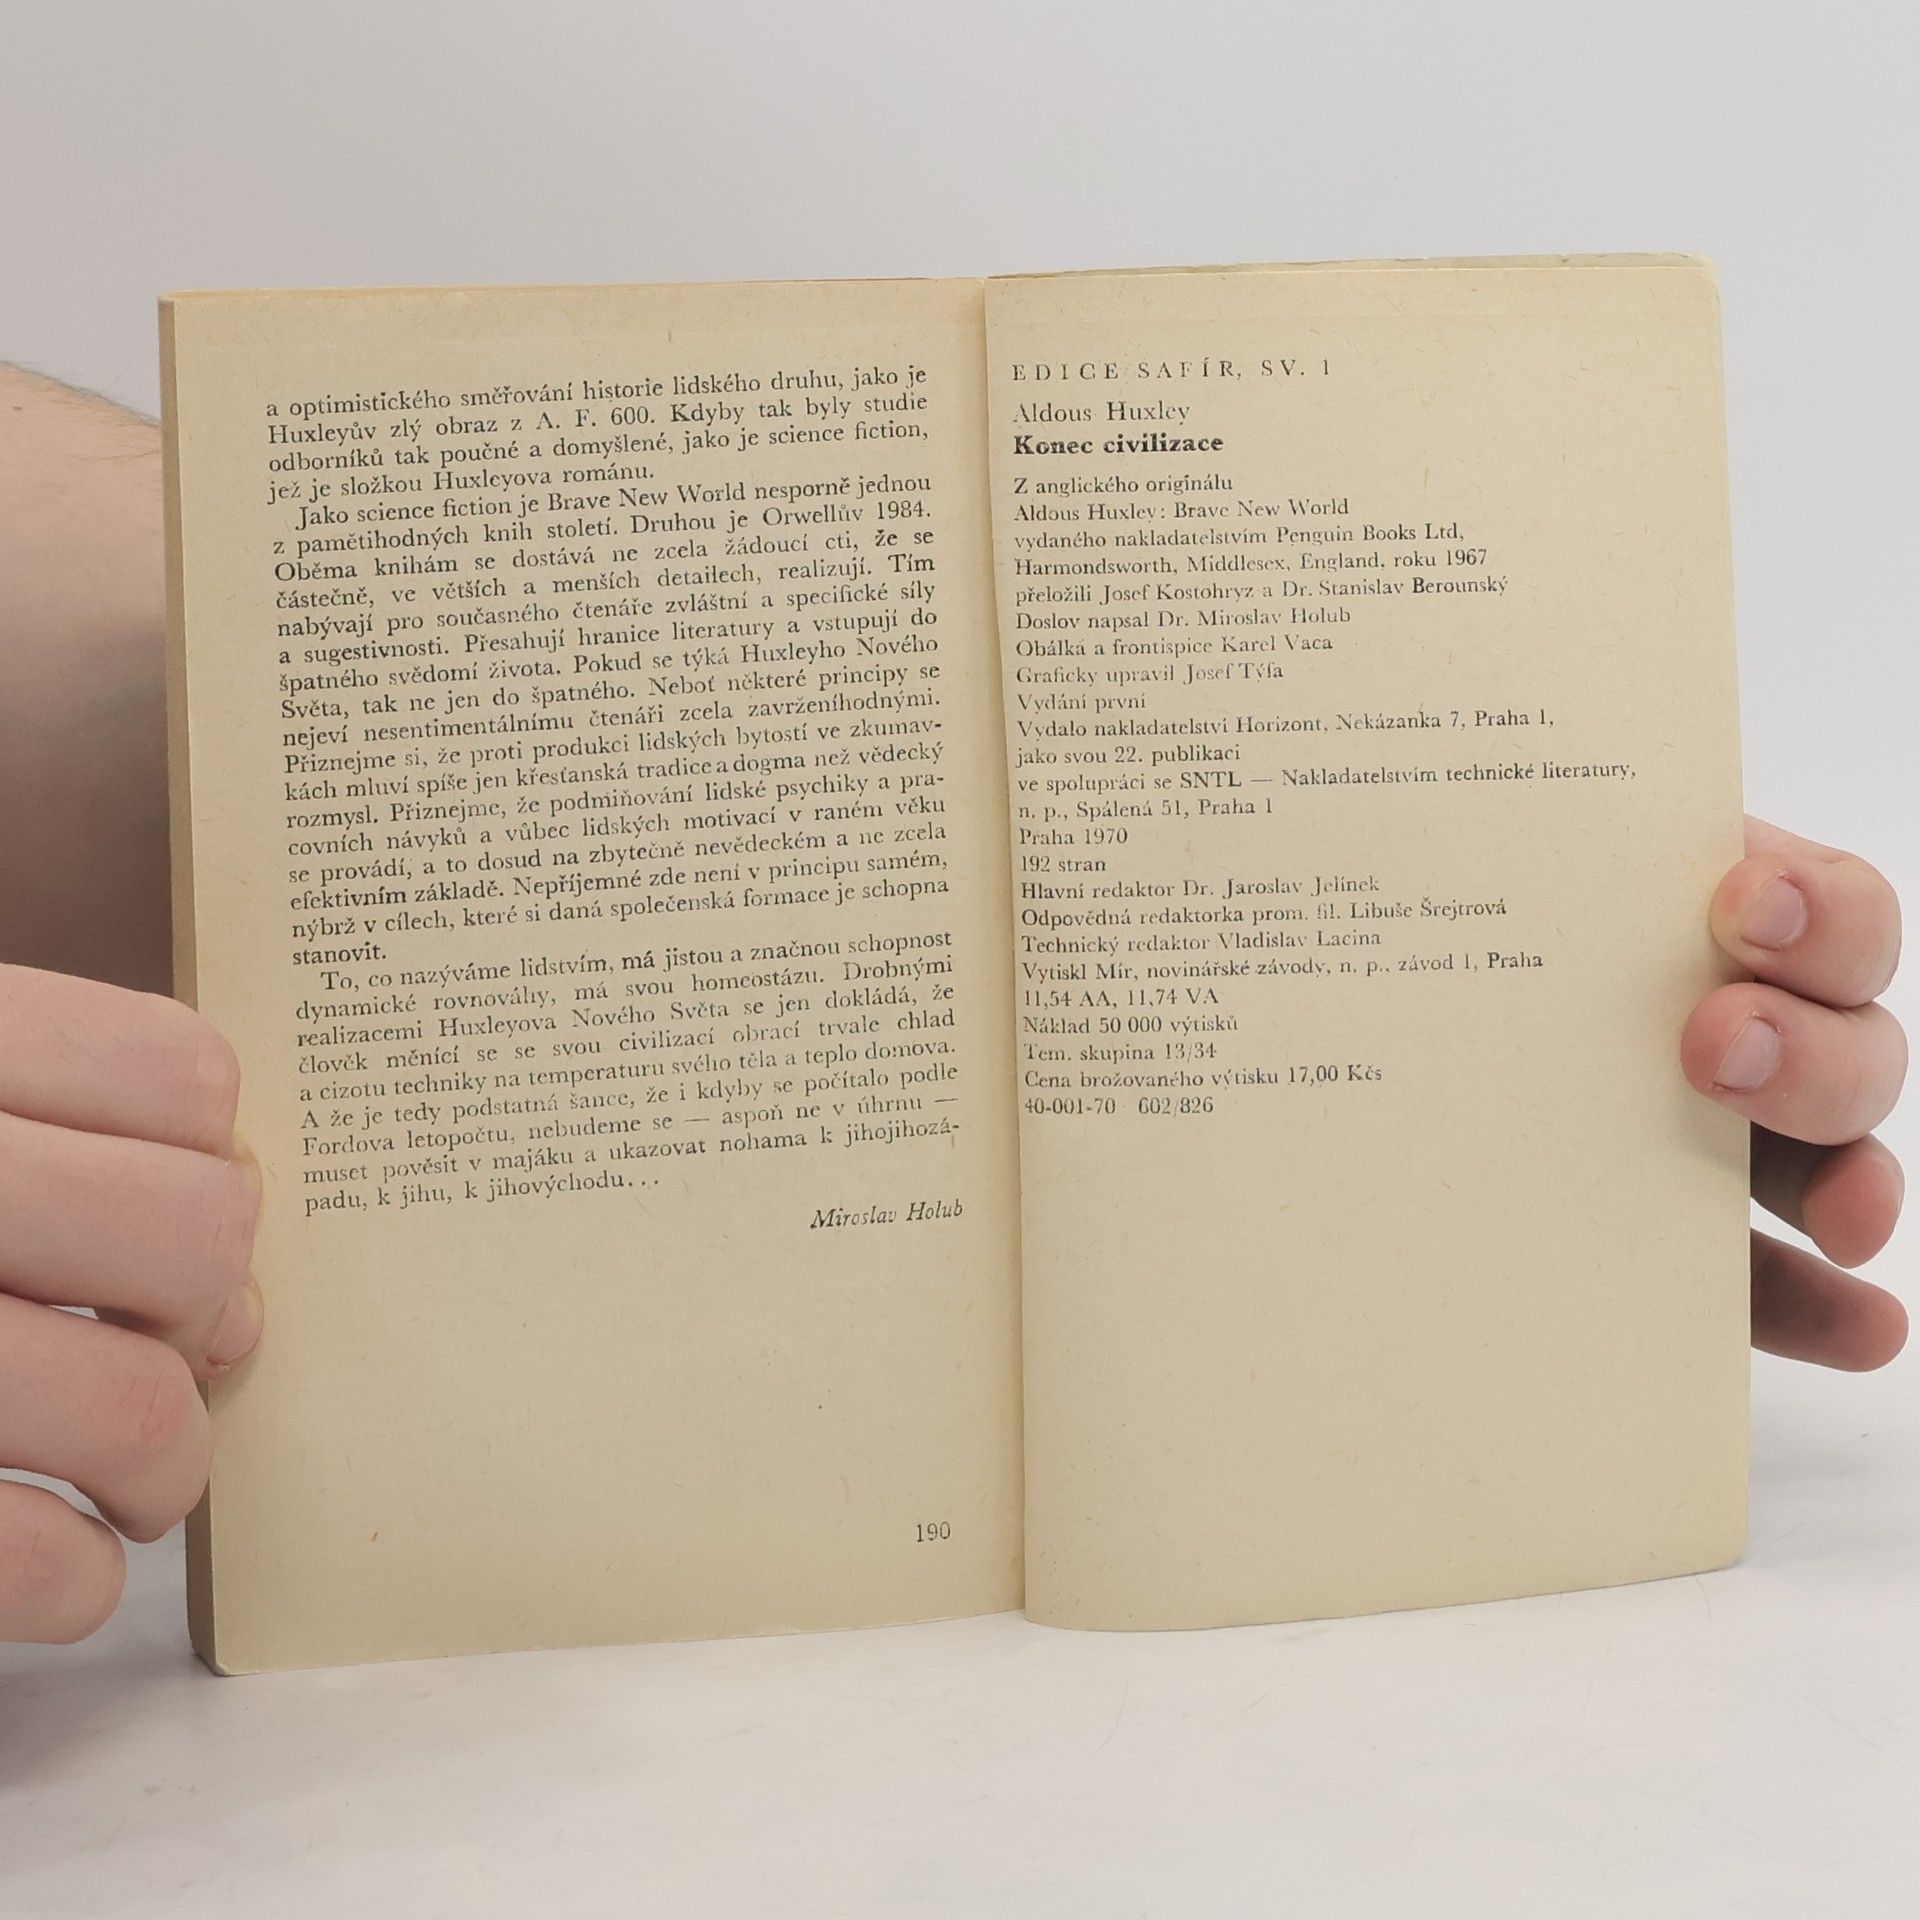 a optimistického směřování historie lidského druhu, jako je
Huxleyův zlý obraz z A. F. 600. Kdyby tak byly studie
odborníků tak poučné a domyšlené, jako je science fiction,
jež je složkou Huxleyova románu.
Jako science fiction je Brave New World nesporně jednou
z pamětihodných knih století. Druhou je Orwellův 1984.
Oběma knihám se dostává ne zcela žádoucí cti, že se
částečně, ve větších a menších detailech, realizují. Tím
nabývají pro současného čtenáře zvláštní a specifické síly
a sugestivnosti. Přesahují hranice literatury a vstupují do
špatného svědomí života. Pokud se týká Huxleyho Nového
Světa, tak ne jen do špatného. Neboť některé principy se
nejeví nesentimentálnímu čtenáři zcela zavrženíhodnými.
Přiznejme si, že proti produkci lidských bytostí ve zkumav-
kách mluví spíše jen křesťanská tradice a dogma než vědecký
rozmysl. Přiznejme, že podmiňování lidské psychiky a pra-
covních návyků a vůbec lidských motivací v raném věku
se provádí, a to dosud na zbytečně nevědeckém a ne zcela
efektivním základě. Nepříjemné zde není v principu samém,
nýbrž v cílech, které si daná společenská formace je schopna
stanovit.
To, co nazýváme lidstvím, má jistou a značnou schopnost
dynamické rovnováhy, má svou homeostázu. Drobnými
realizacemi Huxleyova Nového Světa se jen dokládá, že
člověk měnící se se svou civilizací obrací trvale chlad
a cizotu techniky na temperaturu svého těla a teplo domova.
A že je tedy podstatná šance, že i kdyby se počítalo podle
Fordova letopočtu, nebudeme se — aspoň ne v úhrnu —
muset pověsit v majáku a ukazovat nohama k jihojihozá-
padu, k jihu, k jihovýchodu...
Miroslav Holub
190
EDICE SAFÍR, SV. 1
Aldous Huxley
Konec civilizace
Z anglického originálu
Aldous Huxley: Brave New World
vydaného nakladatelstvím Penguin Books Ltd,
Harmondsworth, Middlesex, England, roku 1967
přeložili Josef Kostohryz a Dr. Stanislav Berounský
Doslov napsal Dr. Miroslav Holub
Obálka a frontispice Karel Vaca
Graficky upravil Josef Týfa
Vydání první
Vydalo nakladatelství Horizont, Nekázanka 7, Praha 1,
jako svou 22. publikaci
ve spolupráci se SNTL — Nakladatelstvím technické literatury,
n. p., Spálená 51, Praha 1
Praha 1970
192 stran
Hlavní redaktor Dr. Jaroslav Jelínek
Odpovědná redaktorka prom. fil. Libuše Šrejtrová
Technický redaktor Vladislav Lacina
Vytiskl Mír, novinářské závody, n. p., závod 1, Praha
11,54 AA, 11,74 VA
Náklad 50 000 výtisků
Tem. skupina 13/34
Cena brožovaného výtisku 17,00 Kčs
40-001-70 602/826